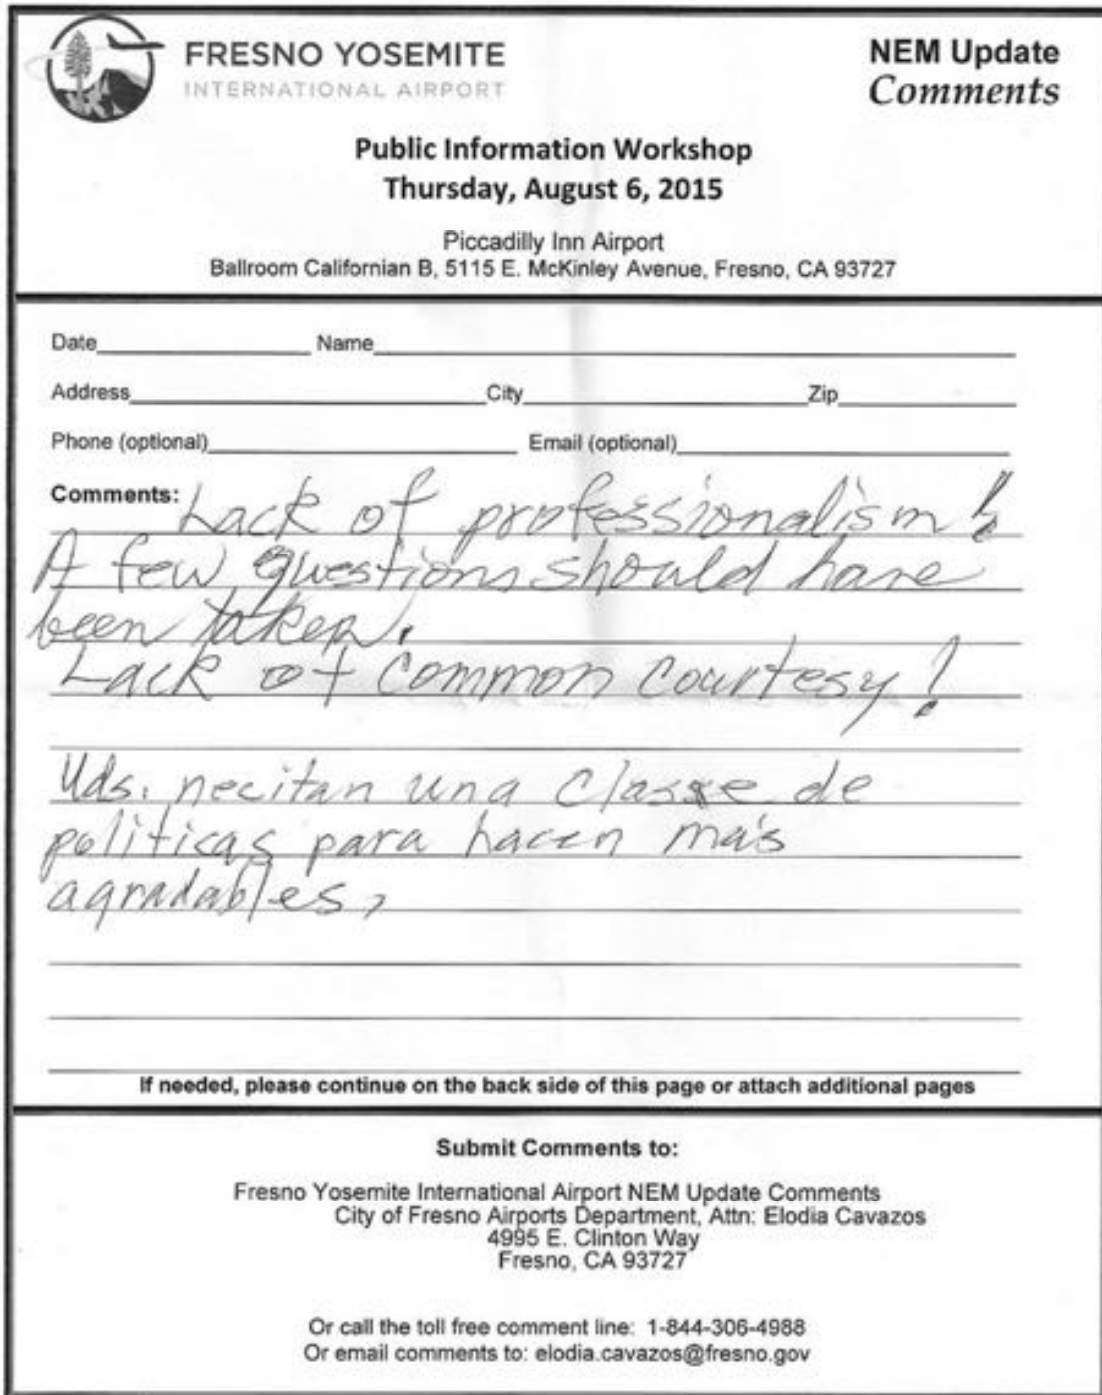 FRESNO YOSEMITE
INTERNATIONAL AIRPORT
NEM Update
Comments
Public Information Workshop
Thursday, August 6, 2015
Piccadilly Inn Airport
Ballroom Californian B, 5115 E. McKinley Avenue, Fresno, CA 93727
Date Name
Address City Zip
Phone (optional) Email (optional)
Comments: Lack of professionalism!
A few questions should have
been taken.
Lack of Common Courtesy!
Uds. necitan una classe de
politicas para hacen más
agradables,
If needed, please continue on the back side of this page or attach additional pages
Submit Comments to:
Fresno Yosemite International Airport NEM Update Comments
City of Fresno Airports Department, Attn: Elodia Cavazos
4995 E. Clinton Way
Fresno, CA 93727
Or call the toll free comment line: 1-844-306-4988
Or email comments to: elodia.cavazos@fresno.gov